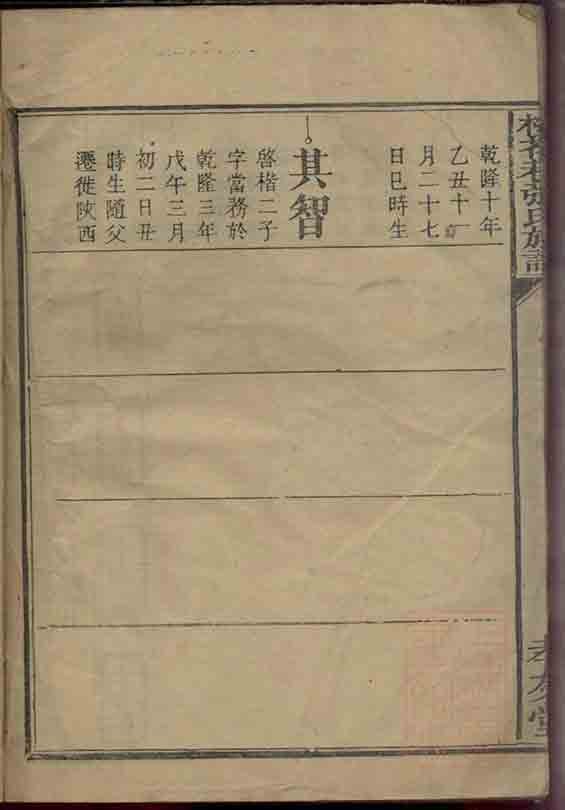 乾隆十年
乙丑十一
月二十七
日巳時生
其智
啓楷二子
字當務於
乾隆三年
戊午三月
初二日丑
時生隨父
遷徙陝西
張氏族譜
孝友堂